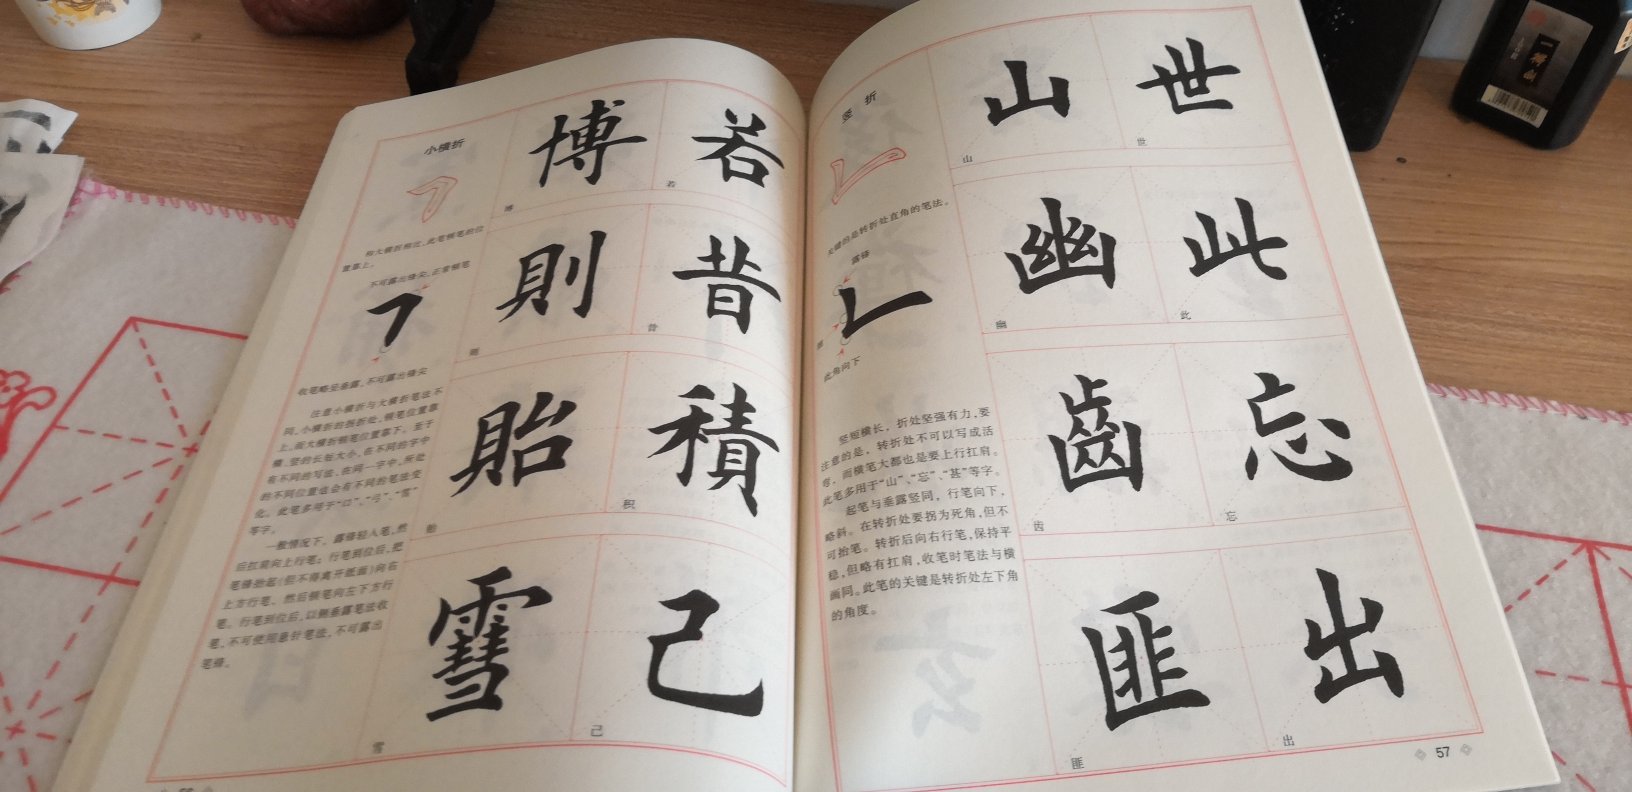 小横折
和大横折相比，此笔顿笔的位
置靠上。
不可露出锋尖，正常顿笔
收笔略呈垂露，不可露出锋尖
注意小横折与大横折笔法不
同，小横折的拐折处，顿笔位置靠
上，而大横折顿笔位置靠下。至于
横、竖的长短大小，在不同的字中
有不同的写法，在同一字中，所处
的不同位置也会有不同的笔法变
化。此笔多用于“口”、“弓”、“雪”
等字。
一般情况下，露锋轻入笔，然
后扛肩向上行笔；行笔到位后，把
笔锋抬起(但不得离开纸面)向右
上方行笔，然后顿笔向左下方行
笔，行笔到位后，以侧垂露笔法收
笔，不可使用悬针笔法，不可露出
笔锋。
博 若
博 若
則 昔
则 昔
貽 積
贻 积
雪 己
雪 己
56
竖 折
关键的是转折处直角的笔法。
露锋
此角向下
竖短横长，折处坚强有力，要
注意的是，转折处不可以写成活
弯，而横笔大都也是要上行扛肩。
此笔多用于“山”、“忘”、“甚”等字。
起笔与垂露竖同，行笔向下，
略斜。在转折处要拐为死角，但不
可抬笔。转折后向右行笔，保持平
稳，但略有扛肩，收笔时笔法与横
画同。此笔的关键是转折处左下角
的角度。
山 世
山 世
幽 此
幽 此
齒 忘
齿 忘
匪 出
匪 出
57
一得阁